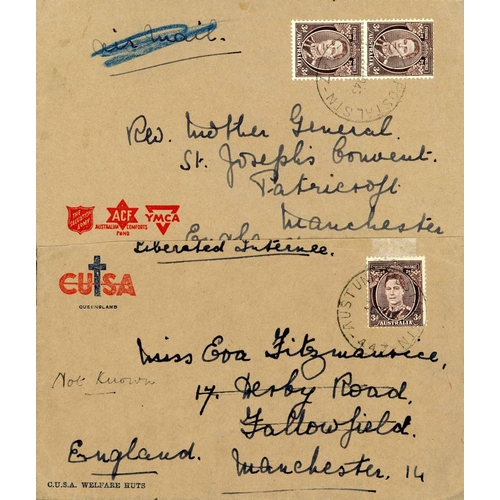 air mail.
3d AUSTRALIA 3d AUSTRALIA
POSTAL STN
Rev. Mother General.
St. Joseph's Convent.
Patricroft
Manchester
THE SALVATION ARMY
ACF
AUSTRALIAN COMFORTS FUND
YMCA
Liberated Internee.
CUSA
QUEENSLAND
3d AUSTRALIA
AUST UN
Miss Eva Fitzmaurice,
Not Known
17. Derby Road,
Fallowfield.
England.
Manchester. 14
C.U.S.A. WELFARE HUTS